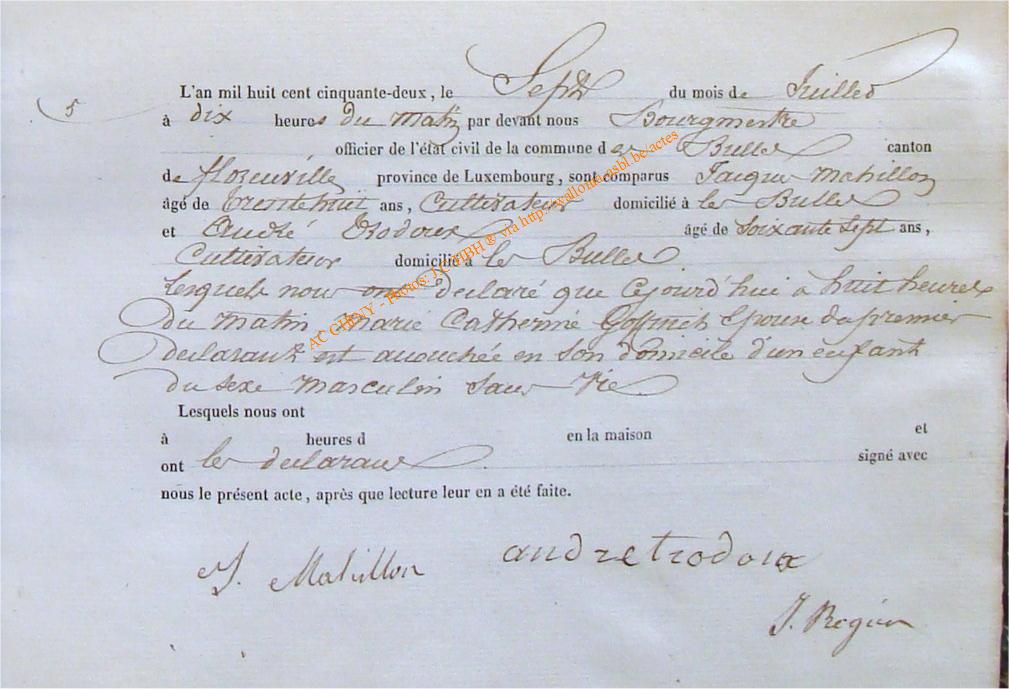 5
L'an mil huit cent cinquante-deux, le Sept du mois de Juillet
à dix heures du matin par devant nous Bourgmestre
officier de l'état civil de la commune de les Bulles canton
de florenville province de Luxembourg, sont comparus Jacques Mahillon
âgé de trente huit ans, Cultivateur domicilié à les Bulles
et André Trodoux âgé de soixante sept ans,
Cultivateur domicilié à les Bulles
Lesquels nous ont declaré que cejourd'hui à huit heures
du matin Marie Catherine Goffinet Epouse du premier
declarant est accouchée en son domicile d'un enfant
du sexe masculin sans Vie
Lesquels nous ont
à heures d en la maison et
ont les declarans signé avec
nous le présent acte, après que lecture leur en a été faite.
J. Mahillon andre trodoux
J. Regien
AC CHINY - Photos: J.C. HBH © via http://wallonia-asbl.be/actes